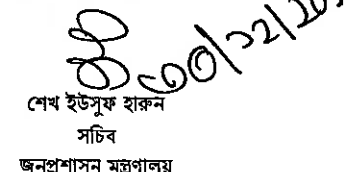 ৩০/১২/২০
শেখ ইউসুফ হারুন
সচিব
জনপ্রশাসন মন্ত্রণালয়